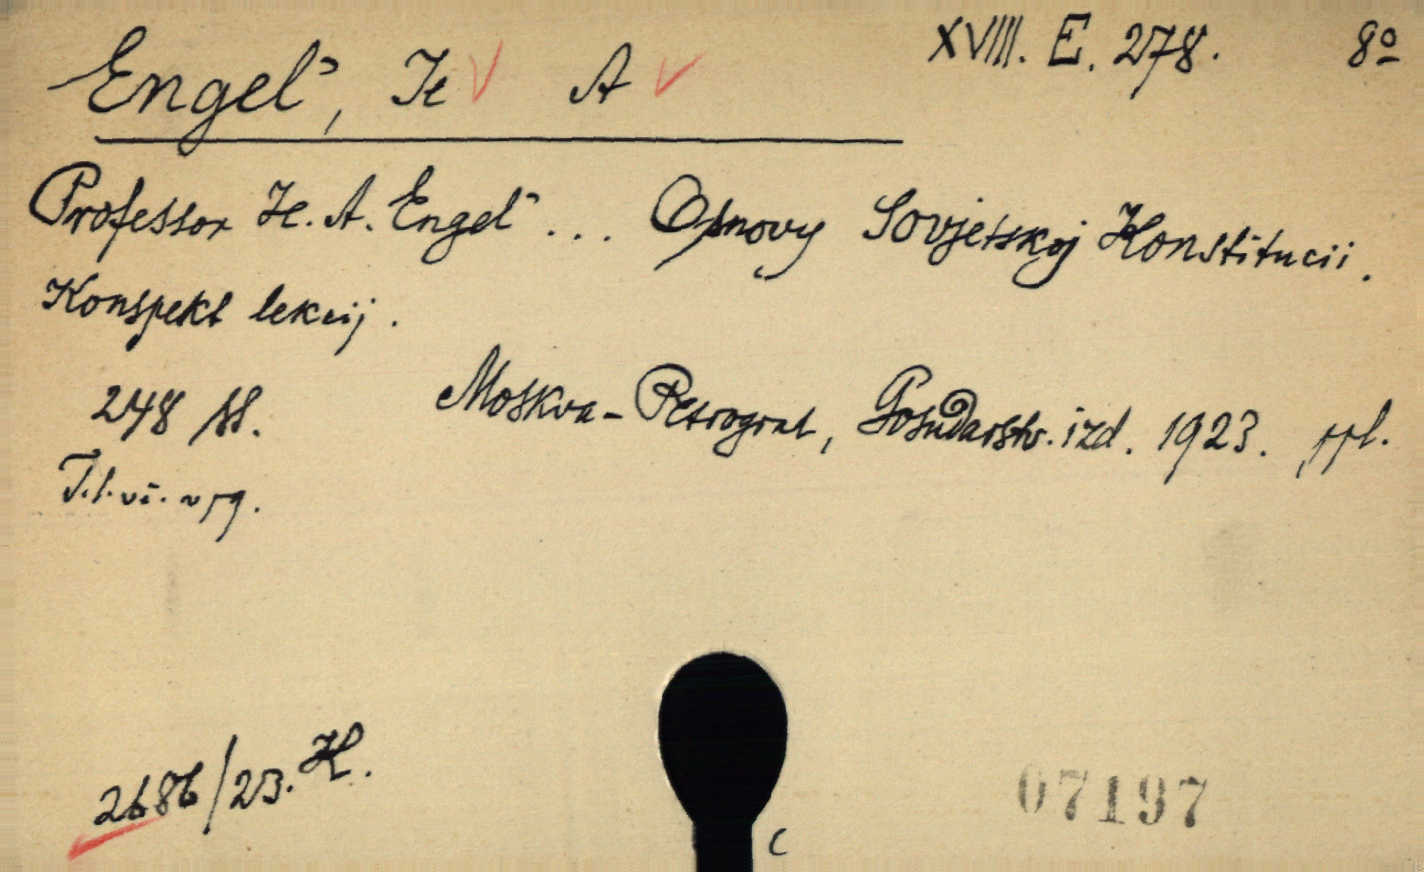 XVIII. E. 278. 8º
Engel', Je A
Professor Je. A. Engel' ... Osnovy Sovjetskoj Konstitucii.
Konspekt lekcij.
248 ss. Moskva-Petrograd, Gosudarstv. izd. 1923. ppl.
2686/23. K.
07197
C